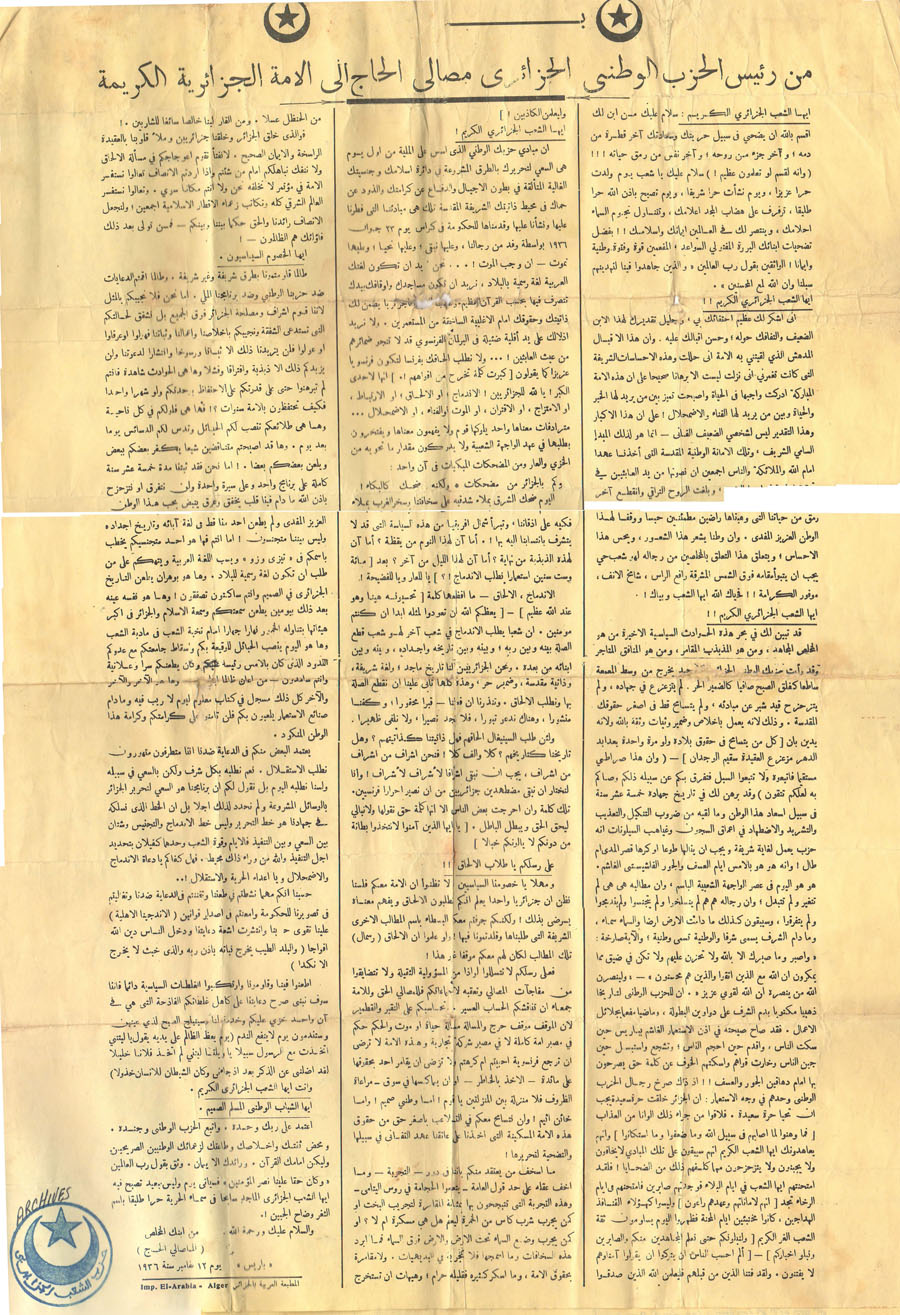 من رئيس الحزب الوطني الجزائري مصالي الحاج الى الامة الجزائرية الكريمة
ايها الشعب الجزائري الكريم : سلام عليك من ابن لك
اقسم بالله ان يضحي في سبيل حريتك وسعادتك آخر قطرة من
دمه ؛ وآخر جزء من روحه ؛ وآخر نفس من رمق حياته !!!
( وانه لقسم لو تعلمون عظيم ! ) سلام عليك يا شعب يوم ولدت
حرا عزيزا ، ويوم نشأت حرا شريفا ، ويوم تصبح باذن الله حرا
طليقا ، ترفرف على هضاب المجد اعلامك ، وتتساول نجوم السماء
احلامك ، وينتصر لك في العالمين ايمانك واسلامك !! بفضل
تضحيات ابنائك البررة المفتولي السواعد ؛ المفعمين قوة وفتوة وطنية
وايمانا ! الواثقين بقول رب العالمين « والذين جاهدوا فينا لنهدينهم
سبلنا وان الله لمع المحسنين » .
ايها الشعب الجزائري الكريم !!
انى اشكر لك عظيم احتفائك بي ، وجليل تقديرك لهذا الابن
الضعيف والتفافك حوله ؛ وحسن اقبالك عليه . وان هذا الاقبال
المدهش الذي لقيتني به الامة انى حللت وهذه الاحساسات الشريفة
التى كانت تغمرني انى نزلت ليست الا برهانا صحيحا على ان هذه الامة
المباركة ادركت واجبها في الحياة واصبحت تميز بين من يريد لها الخير
والحياة وبين من يريد لها الفناء والاضمحلال ! على ان هذا الاكبار
وهذا التقدير ليس لشخصي الضعيف الفاني . انما هو لذلك المبدإ
السامي الشريف ، وتلك الامانة الوطنية المقدسة التى اخذنا عهدا
امام الله والملائكة والناس اجمعين ان نصونها من يد العابثين في
وبلغت الروح التراقي وانقطع آخر
رمق من حياتنا التى وهبناها راضين مطمئنين حبسا ووقفا لهذا
الوطن العزيز المفدى . وان وطنا يشعر هذا الشعور ، ويحس هذا
الاحساس ؛ ويتعلق هذا التعلق بالمخلصين من رجاله لهو شعب حي
يجب ان يتبوأ مقامه فوق الشمس المشرقة رافع الراس ، شامخ الانف ،
موفور الكرامة !! فحياك الله ايها الشعب وبياك !
ايها الشعب الجزائري الكريم !!
قد تبين لك في بحر هذه الحوادث السياسية الاخيرة من هو
المخلص المجاهد ، ومن هو المذبذب المقامر ، ومن هو المنافق المتاجر
وقد رأت حزبك الوطني يخرج من وسط المعمعة
ساطعا كفلق الصبح صافيا كالضمير الحر . لم يتزعزع في جهاده ، ولم
يتزحزح قيد شبر عن مبادئه ، ولم يتسامح قط في اصغر حقوقك
المقدسة . وذلك لانه يعمل باخلاص وضمير وثبات وثقة بالله ولانه
يدين بان [ كل من يتسامح في حقوق بلاده ولو مرة واحدة يعد ابد
الدهر مزعزع العقيدة سقيم الوجدان ] – ( وان هذا صراطي
مستقيما فاتبعوه ولا تتبعوا السبل فتفرق بكم عن سبيله ذلكم وصاكم
به لعلكم تتقون ) وقد برهن لك في تاريخ جهاده خمسة عشر سنة
في سبيل اسعاد هذا الوطن وما لقيه من ضروب التنكيل والتعذيب
والتشريد والاضطهاد في اعماق السجون وغياهب السيلونات انه
حزب يعمل لغاية شريفة ؛ ويجب ان ينالها طوعا او كرها قصر المدى ام
طال ! وانه هو هو بالامس ايام العسف والجور الفاشيستي الغاشم .
هو هو اليوم في عصر الواجهة الشعبية الباسم ، وان مطالبه هي هي لم
تتغير ولم تتبدل ؛ وان رجاله هم هم لم ينسلخوا ولم يتجنسوا ولم يندمجوا
ولم يتفرقوا ، وسيبقون كذلك ما دامت الارض ارضا والسماء سماء .
وما دام الشرف يسمى شرفا والوطنية تسمى وطنية ؛ والآية صارخة :
« واصبر وما صبرك الا بالله ولا تحزن عليهم ولا تكن في ضيق مما
يمكرون ان الله مع الذين اتقوا والذين هم محسنون » - « ولينصرن
الله من ينصره ان الله لقوي عزيز » . ان للحزب الوطني لتاريخا
ذهبيا مكتوبا بدم الشرف على دواوين البطولة ، وماضيا مفعما بجلائل
الاعمال . فقد صاح صيحته في اذن الاستعمار الغاشم بباريس حين
سكت الناس ، واقدم حين احجم الناس ؛ وتشجع واستبسل حين
جبن الناس وخارت قواهم واسكتهم الخوف عن كلمة حق يصرحون
بها امام دهاقين الجور والعسف !! اذ ذاك صرخ رجال الحزب
الوطني وحدهم في وجه الاستعمار : ان الجزائر خلقت حرة سعيدة يجب
ان تحيا حرة سعيدة . فلاقوا من جراء ذلك الوانا من العذاب
[ فما وهنوا لما اصابهم في سبيل الله وما ضعفوا وما استكانوا ] وانهم
يعاهدونك ايها الشعب الكريم انهم سيبقون على تلك المبادئ لا يخافون
ولا يجبنون ولا يتزحزحون مهما كلفهم ذلك من الضحايا ! فلقد
امتحنتهم ايها الشعب في ايام البلاء فوجدتهم صابرين فامتحنهم في ايام
الرخاء تجد [ انهم لاماناتهم وعهدهم راعون ] وليسوا كهؤلاء
الهداجين ، كانوا مختبئين ايام المحنة فظهروا اليوم يساومون ثقة
الشعب الغر الكريم [ ولنبلونكم حتى نعلم المجاهدين منكم والصابرين
ونبلو اخباركم ] – [ ألم احسب الناس ان يتركوا ان يقولوا آمنا وهم
لا يفتنون . ولقد فتنا الذين من قبلهم فليعلمن الله الذين صدقوا
وليعلمن الكاذبين ! ]
ايها الشعب الجزائري الكريم !
ان مبادئ حزبك الوطني الذى اسس على الملية من اول يوم
هي السعي لتحريرك بالطرق المشروعة في دائرة اسلامك وجنسيتك
الغالية المتألقة في بطون الاجيال والدفاع عن كرامتك والذود عن
حماك في محيط ذاتيتك الشريفة المقدسة تلك هي مبادئنا التى فطرنا
عليها ونشأنا عليها وقدمناها للحكومة في كراس يوم ٢٢ جوان
١٩٣٦ بواسطة وفد من رجالنا ، وعليها نبقى ؛ وعليها نحيا ؛ وعليها
نموت – ان وجب الموت ! ... نحن نريد ان تكون لغتك
العربية لغة رسمية بالبلاد ، نريد ان تكون مساجدك واوقافك بيدك
تتصرف فيها بحسب القرآن العظيم ، يضمن لك
ذاتيتك وحقوقك امام الاغلبية الساحقة من المستعمرين . ولا نريد
اذلالك على يد أقلية ضئيلة في البرلمان الفرنسوي قد لا تنجو ضمائرهم
من عبث العابثين ! ... ولا نطلب الحاقك بفرنسا لتكون فرنسويا
عزيزا كما يقولون [ كبرت كلمة تخرج من افواههم ! ] انها لاحدى
الكبر ! يا لله للجزائريين ! الاندماج ؛ او الالحاق ؛ او الارتباط ،
او الامتزاج ، او الاقتران ، او الموت او الفناء ، او الاضمحلال ...
مترادفات معناها واحد يلوكها قوم ولا يفهمون معناها ويفتخرون
بطلبها في عهد الواجهة الشعبية ولا يدركون مقدار ما تحويه من
الخزي والعار ومن المضحكات المبكيات في آن واحد :
وكم بالجزائر من مضحكات ، ولكنه ضحك كالبكاء !
اليوم ضحك الشرق بملء شدقيه على سخافتنا وسخر الغرب بملاء
فكيه على اذقاننا ، وتبرأ شمال افريقيا من هذه السياسة التى قد لا
يتشرف بانتسابنا اليه بها ! . أما آن لهذا النوم من يقظة ؟ أما آن
لهذه الذبذبة من نهاية ؟ أما آن لهذا الليل من آخر ؟ بعد [ مائة
وست سنين استعمارا نطلب الاندماج ! ؟ ] يا للعار ويا للفضيحة ! .
الاندماج ، الالحاق – ما افظعها كلمة [ تحسبونه هينا وهو
عند الله عظيم ] – [ يعظكم الله ان تعودوا لمثله ابدا ان كنتم
مومنين . ان شعبا يطلب الاندماج في شعب آخر لهو شعب قطع
الصلة بينه وبين ربه ؛ وبينه وبين تاريخه واجداده ، وبينه وبين
ابنائه من بعده . ونحن الجزائريين لنا تاريخ ماجد ؛ ولغة شريفة ،
وذاتية مقدسة ، وضمير حر ، وهذه كلها تأبى علينا ان نقطع الصلة
بها ونطلب الالحاق .
منشورا ، وهناك ندعو ثبورا . فلا نجد نصيرا ، ولا نلقى ظهيرا .
ولئن طلب السينيغال الحاقهم فهل ذاتيتنا كذاتيتهم ؟ وهل
تاريخنا كتاريخهم ؟ كلا والف كلا ! فنحن اشراف من اشراف
من اشراف ، يجب ان نبقى اشرافا لأشراف لأشراف ! وانا
لنختار ان نبقى مضطهدين جزائريين من ان نصير احرارا فرنسيين.
تلك كلمة وان احرجت بعض الناس الا انها كلمة حق نقولها ولا نبالي
ليحق الحق ويبطل الباطل . [ يا ايها الذين آمنوا لا تتخذوا بطانة
من دونكم لا يألونكم خبالا ]
على رسلكم يا طلاب الالحاق !!
ومهلا يا خصومنا السياسيين لا تظنوا ان الامة معكم فلسنا
نظن ان جزائريا واحدا يعلم انكم تطلبون الالحاق ويفهم معناه
يسرضى بذلك ! ولكنكم جرفتم معكم البسطاء باسم المطالب الاخرى
الشريفة التى طلبناها وقلدتمونا فيها ! ولو علموا ان الالحاق ( رسمال )
تلك المطالب لكان لهم معكم موقفا غير هذا !
فعلى رسلكم لا تنسلوا افرادا من المسؤولية الثقيلة ولا تتضايقوا
من مفاجآت المصالي وتعقبه لاعمالكم فللمصالي الحق وللامة
جمعاء ان تناقشكم الحساب العسير . تحاسبكم على النقير والقطمير
لان الموقف موقف حرج والمسألة مسألة حياة او موت والحكم حكم
في مصير امة كاملة لا في مصير شركة تجارية وهذه الامة لا ترضى
ان ترجع فرنسوية احببتم ام كرهتم ولا ترضى ان يقامر احد بحقوقها
على مائدة – الاخذ بالخاطر – او ان يهاكسها في سوق – مراعاة
الظروف فلا منزلة بين المنزلتين يا قوم ! اما وطني صميم ! واما
خائن اثيم ! ولن نتسامح معكم في التلاعب باصغر حق من حقوق
هذه الامة المسكينة التى اخذنا على عاتقنا عهد التفاني في سبيلها
والتضحية لتحريرها !
ما اسخف من يعتقد منكم باننا في دور – التجربة – وما
اخف عقله على حد قول العامة – يتعلموا الحجامة في روس اليتامى –
وهذه التجربة التى تتبجحون بها بمثابة المقامرة لتجريب البخت او
كمن يجرب شرب كاس من الخمرة ليعلم هل هي مسكرة ام لا ؟ او
كمن يجرب وضع السماء تحت الارض والارض فوق السماء فما ابرد
هذه السخافات وما اسمجها فلا تجربوا في البديهيات . ولا مقامرة
بحقوق الامة ، وما اسكر كثيره فقليله حرام ؛ وهيهات ان تستخرج
من الحنظل عسلا . ومن القار لبنا خالصا سائغا للشاربين !
فوالذى خلق الجزائر وخلقنا جزائريين وملأ قلوبنا بالعقيدة
الراسخة والايمان الصحيح . لا نفتأ نقوم اعوجاجكم في مسألة الالحاق
ولا ننفك نباهلكم امام من شئتم واذا اردتم الانصاف تعالوا نستفسر
الامة في مؤتمر لا نخلفه نحن ولا انتم مكانا سوى ، وتعالوا نستفسر
العالم الشرقي كله ونكاتب زعماء الاقطار الاسلامية اجمعين ؛ ولنجعل
الانصاف رائدنا والحق حكما بيننا وبينكم – فمن تولى بعد ذلك
فأولئك هم الظالمون – !
ايها الخصوم السياسيون .
طالما قاومتمونا بطرق شريفة وغير شريفة . وطالما اقمتم الدعايات
ضد حزبنا الوطني وضد برنامجنا الملي . اما نحن فلا نجيبكم بالمثل
لاننا قوم اشراف ومصلحة الجزائر فوق الجميع بل نشفق لحالتكم
التى تستدعي الشفقة ونجيبكم باخلاصنا واعمالنا وثباتنا فهولوا او عرقلوا
او عولوا فلن يزيدنا ذلك الا ثباتا ورسوخا وانتشارا لدعوتنا ولن
يزيدكم ذاك الا ذبذبة وافتراقا وفشلا وها هي الحوادث شاهدة فانتم
لم تبرهنوا حتى على قدرتكم على الاحتفاظ بوحدتكم ولو شهرا واحدا
فكيف تحتفظون بالامة سنوات ١٢ فها هي فلولكم في كل ناحية
وها هي طلائعكم تنصب لكم الحبائل وتدس لكم الدسائس يوما
بعد يوم . وها قد اصبحتم متناقضين شيعا يكفر بعضكم ببعض
ويلعن بعضكم بعضا . ! اما نحن فقد ثبتنا مدة خمسة عشر سنة
كاملة على برنامج واحد وعلى سيرة واحدة ولن نتفرق او نتزحزح
باذن الله ما دام فينا قلب يخفق وعرق ينبض بحب هذا الوطن
العزيز المفدى ولم يطعن احد منا قط في لغة آبائه وتاريخ اجداده
وليس بيننا متجنسون ! اما انتم فها هو احد متجنسيكم يخطب
باسمكم في « تيزي وزو » ويسب اللغة العربية ويتهكم على من
طلب ان تكون لغة رسمية للبلاد . وها هو بوهران يطعن التاريخ
الجزائري في الصميم وانتم ساكتون تصفقون ! وها هو نفسه عينه
بعد ذلك بيومين يطعن سمعتكم وسمعة الاسلام والجزائر في اكبر
هيئاتها بتناوله الخمور نهارا جهارا امام نخبة الشعب في مادبة الشعب
وها هو اليوم ينصب الحبائل للوقيعة بكم واسقاط جامعتكم مع عدوكم
اللدود الذى كان بالامس رئيسا عليكم وكان يطعنكم سرا وعلانية
وانتم ساعدون – من اعان ظالما وها هو الآخر والآخر
والآخر كل ذلك مسجل في كتاب معلوم ليوم لا ريب فيه وما دام
صنائع الاستعمار يلعبون بكم فلن تامنوا على كرامتكم وكرامة هذا
الوطن المنكود .
يعتمد البعض منكم في الدعاية ضدنا اننا متطرفون متهورون
نطلب الاستقلال . نعم نطلبه بكل شرف ولكن بالسعي في سبيله
ولسنا نطلبه اليوم بل نقول لكم ان برنامجنا هو السعي لتحرير الجزائر
بالوسائل المشروعة ولم نحدد لذلك اجلا بل ان الخط الذى نسلكه
في جهادنا هو خط التحرير وليس خط الاندماج والتجنيس وشتان
بين السعي وبين التنفيذ فالايام وقوة الشعب وحدها كفيلان بتحديد
اجل التنفيذ والله من وراء ذلك محيط . فهل كفاكم يا دعاة الاندماج
والاضمحلال ويا اعداء الحرية والاستقلال !..
حسبنا انكم مهما نشطتم في طعننا وتفننتم في الدعاية ضدنا وتغاليتم
في تصويرنا للحكومة وامعنتم في اصدار قوانين ( الاندجينا الاهلية )
علينا تقوى حزبنا وانتشرت اشعة دعايتنا ودخل الناس دين الله
افواجا ( والبلد الطيب يخرج نباته باذن ربه والذى خبث لا يخرج
الا نكدا )
اطعنوا فينا وقاومونا وارتكبوا الغلطات السياسية دائما فاننا
سوف نبني صرح دعايتنا على كاهل غلطاتكم الفادحة التى هي في
آن واحد خزي عليكم وخدمة لنا وسيتبلج الصبح لذي عينين
وستندمون يوم لا ينفع الندم [ يوم يعض الظالم على يديه يقول يا ليتني
اتخذت مع الرسول سبيلا يا ويلتنا ليتني لم اتخذ فلانا خليلا
لقد اضلني عن الذكر بعد اذ جاءني وكان الشيطان للانسان خذولا ]
وانت ايها الشعب الجزائري الكريم .
ايها الشباب الوطني المسلم الصميم .
اعتمد على ربك وحده . واتبع الحزب الوطني وجنده .
ومحض ثقتك واخلاصك وطاعتك لزعمائك الوطنيين الصريحين
وليكن امامك القرآن . ورائدك الايمان . وثق بقول رب العالمين
« وكان حقا علينا نصر المؤمنين » فسياتى يوم وليس ببعيد تصبح فيه
ايها الشعب الجزائري الماجد سابحا في سماء الحرية حرا طليقا باسم
الثغر وضاح الجبين !
والسلام عليك ورحمة الله . من ابنك المخلص
( المصالي الحاج )
« باريس » يوم ١٢ نوفامبر سنة ١٩٣٦
المطبعة العربية بالجزائر Imp. El-Arabia - Alger
ARCHIVES
حزب الشعب الجزائري